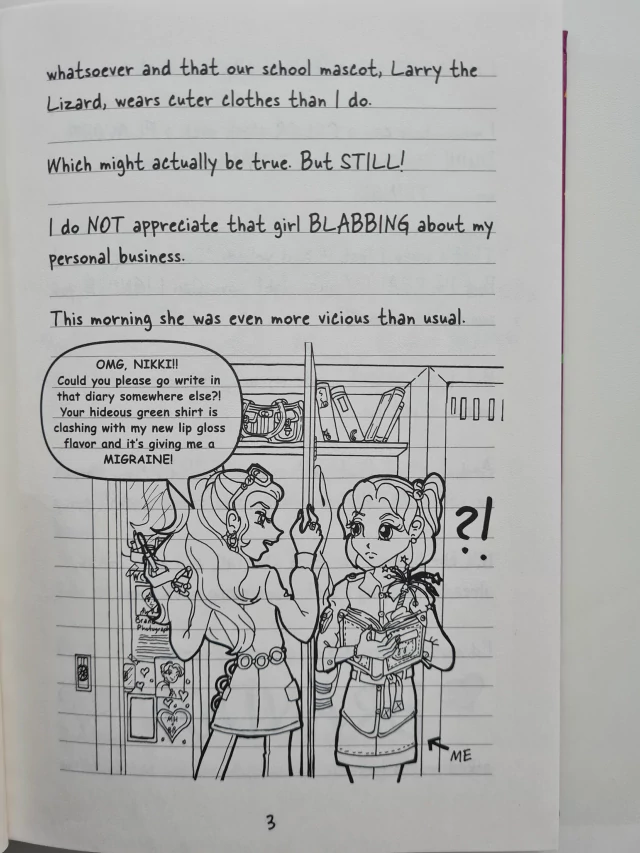 whatsoever and that our school mascot, Larry the
Lizard, wears cuter clothes than I do.
Which might actually be true. But STILL!
I do NOT appreciate that girl BLABBING about my
personal business.
This morning she was even more vicious than usual.
OMG, NIKKI!!
Could you please go write in
that diary somewhere else?!
Your hideous green shirt is
clashing with my new lip gloss
flavor and it's giving me a
MIGRAINE!
?!
ME
3